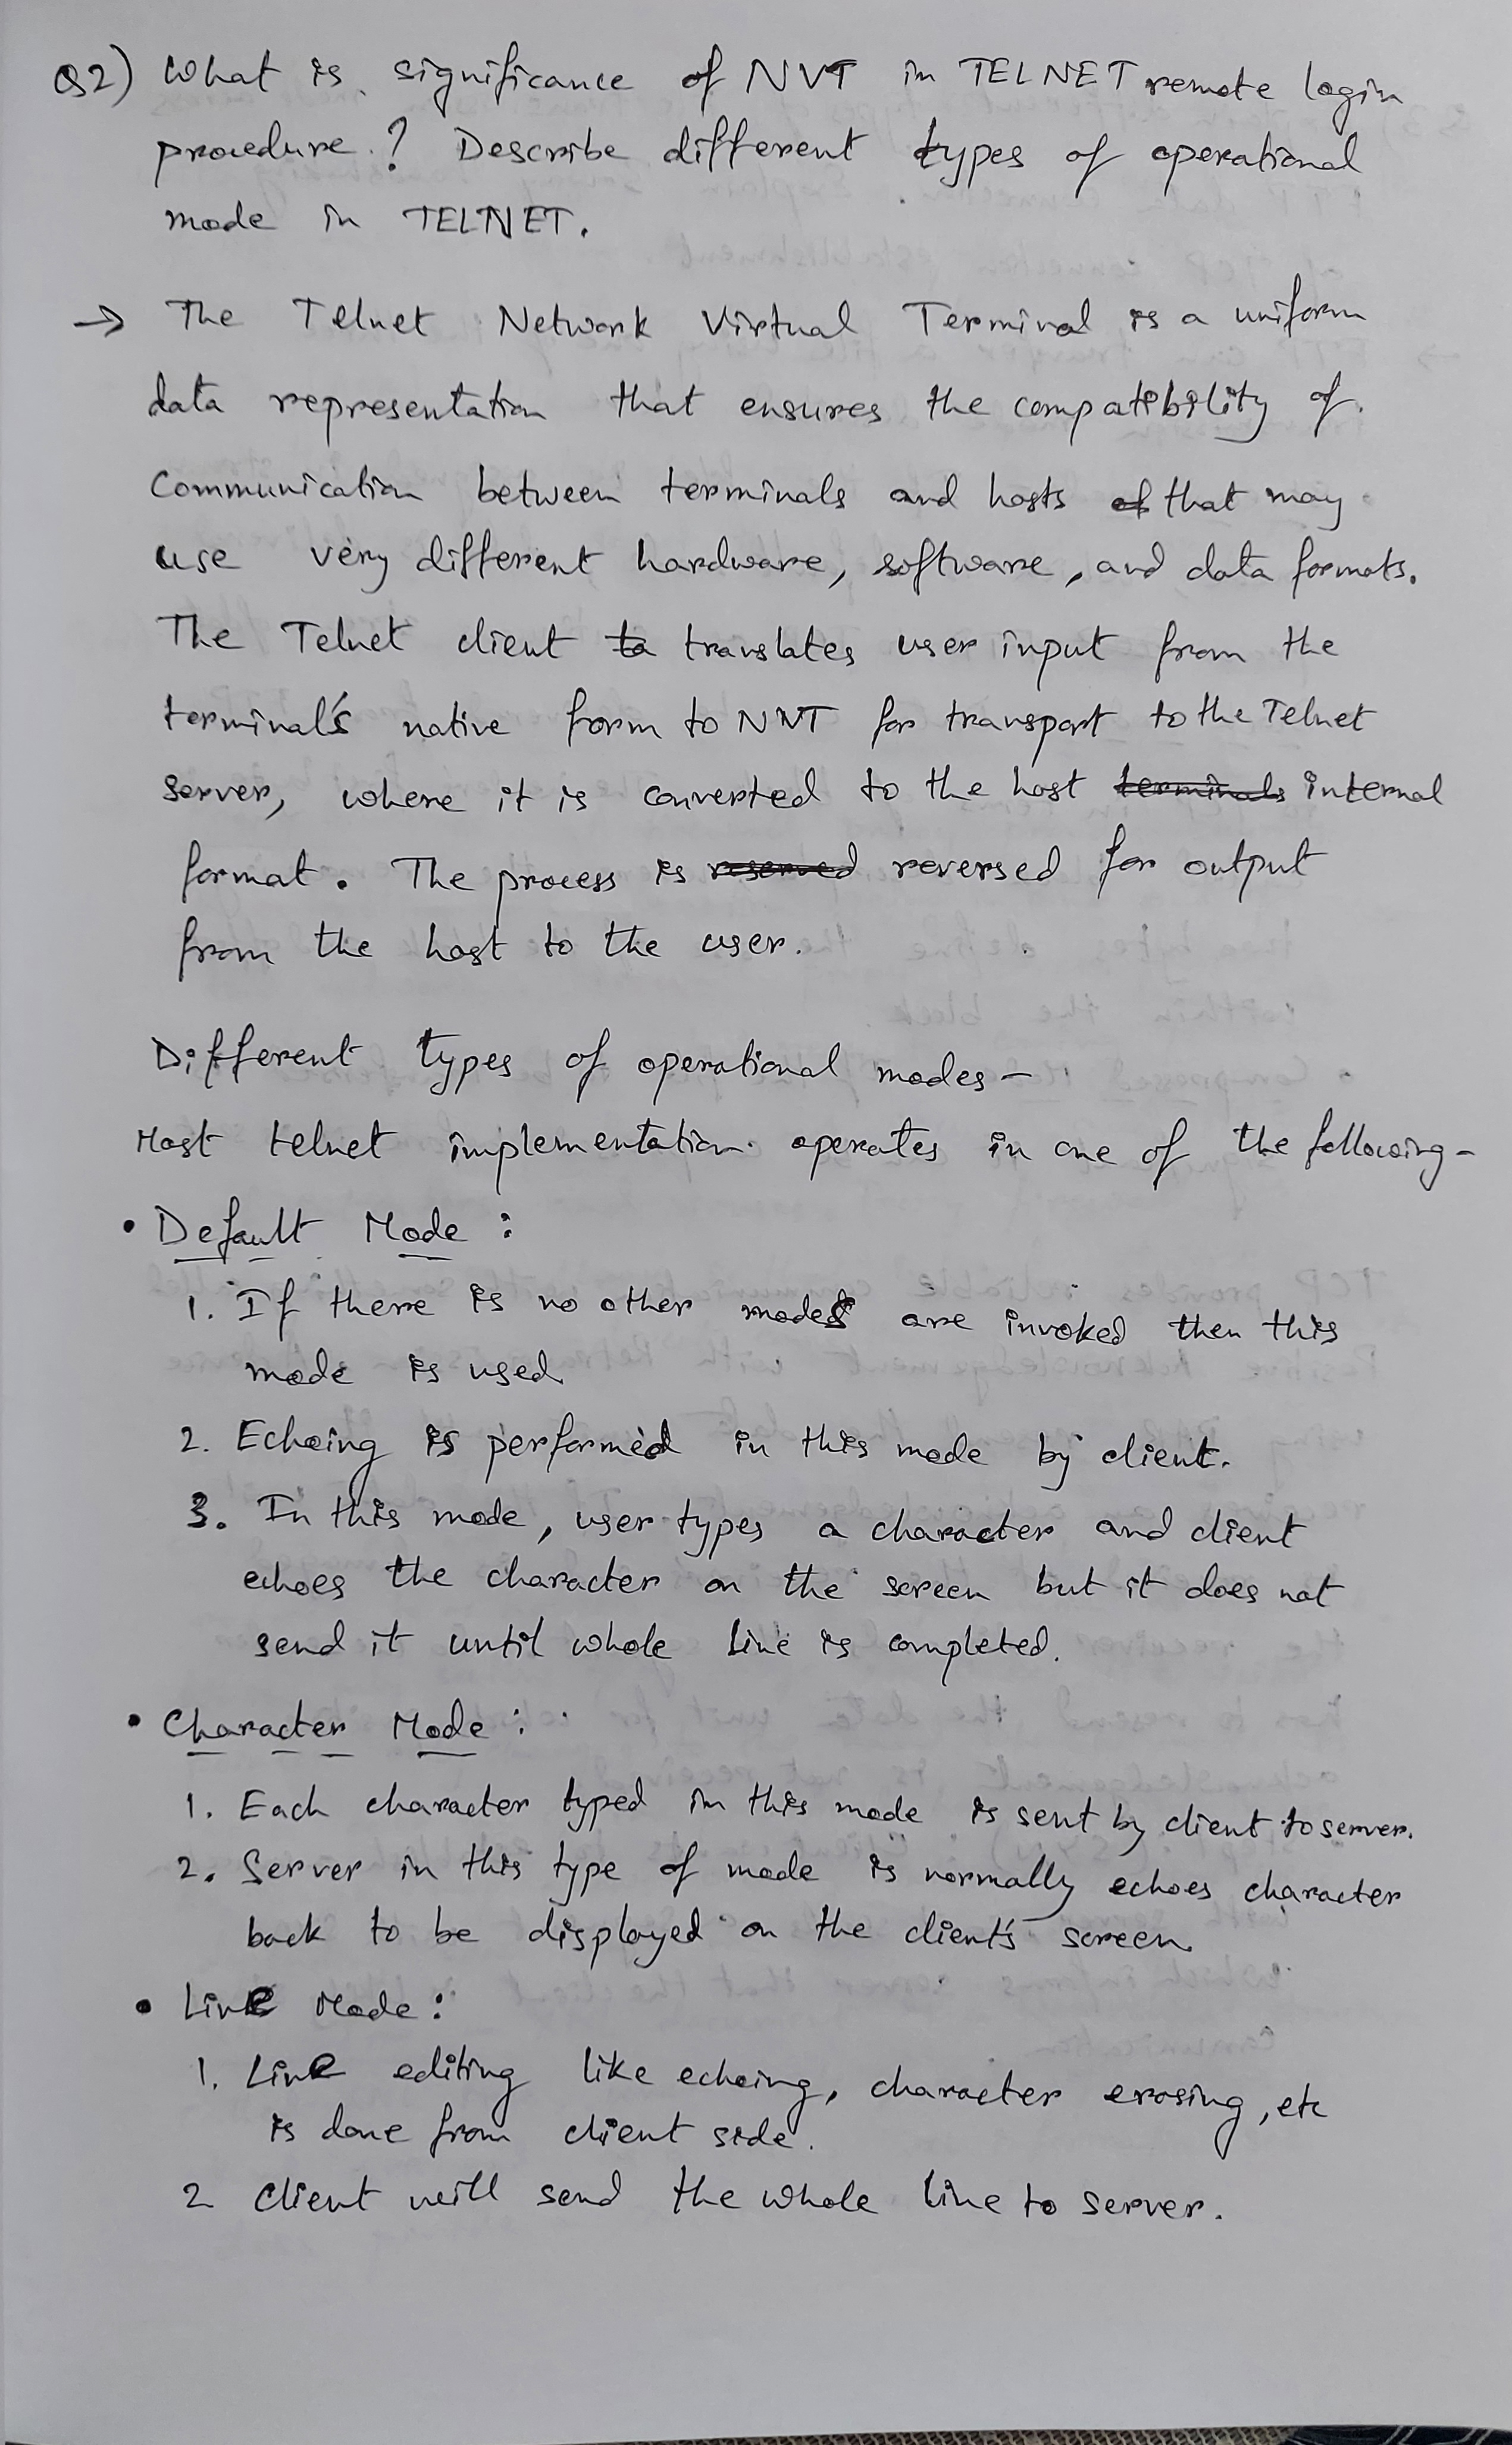 Q2) What is significance of NVT in TELNET remote login
procedure? Describe different types of operational
mode in TELNET.
→ The Telnet Network Virtual Terminal is a uniform
data representation that ensures the compatibility of
Communication between terminals and hosts of that may
use very different hardware, software, and data formats.
The Telnet client ta translates user input from the
terminal's native form to NVT for transport to the Telnet
server, where it is converted to the host terminals internal
format. The process is reserved reversed for output
from the host to the user.
Different types of operational modes -
Most telnet implementation operates in one of the following -
• Default Mode :
1. If there is no other modes are invoked then this
mode is used
2. Echoing is performed in this mode by client.
3. In this mode, user types a character and client
echoes the character on the screen but it does not
send it until whole line is completed.
• Character Mode :
1. Each character typed in this mode is sent by client to server.
2. Server in this type of mode is normally echoes character
back to be displayed on the client's screen
• Line Mode :
1. Line editing like echoing, character erasing, etc
is done from client side.
2 Client will send the whole line to server.